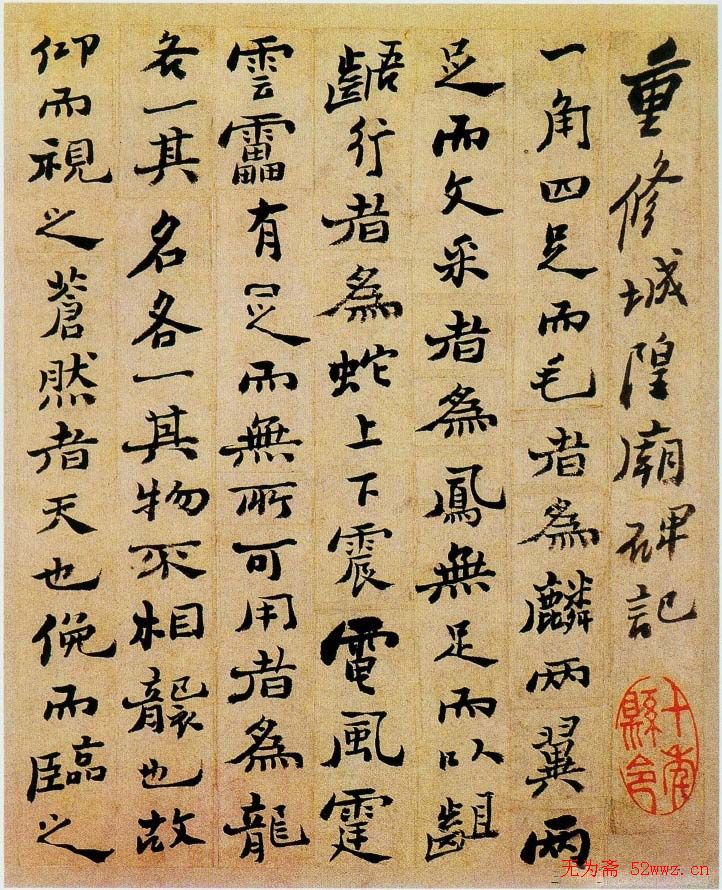 重修城隍廟碑記
一角四足而毛者為麟兩翼兩
足而文采者為鳳無足而以齟
齬行者為蛇上下震電風霆
雲靁有足而無所可用者為龍
各一其名各一其物不相襲也故
仰而視之蒼然者天也俛而臨之
十年縣令
无为斋 52wwz.cn